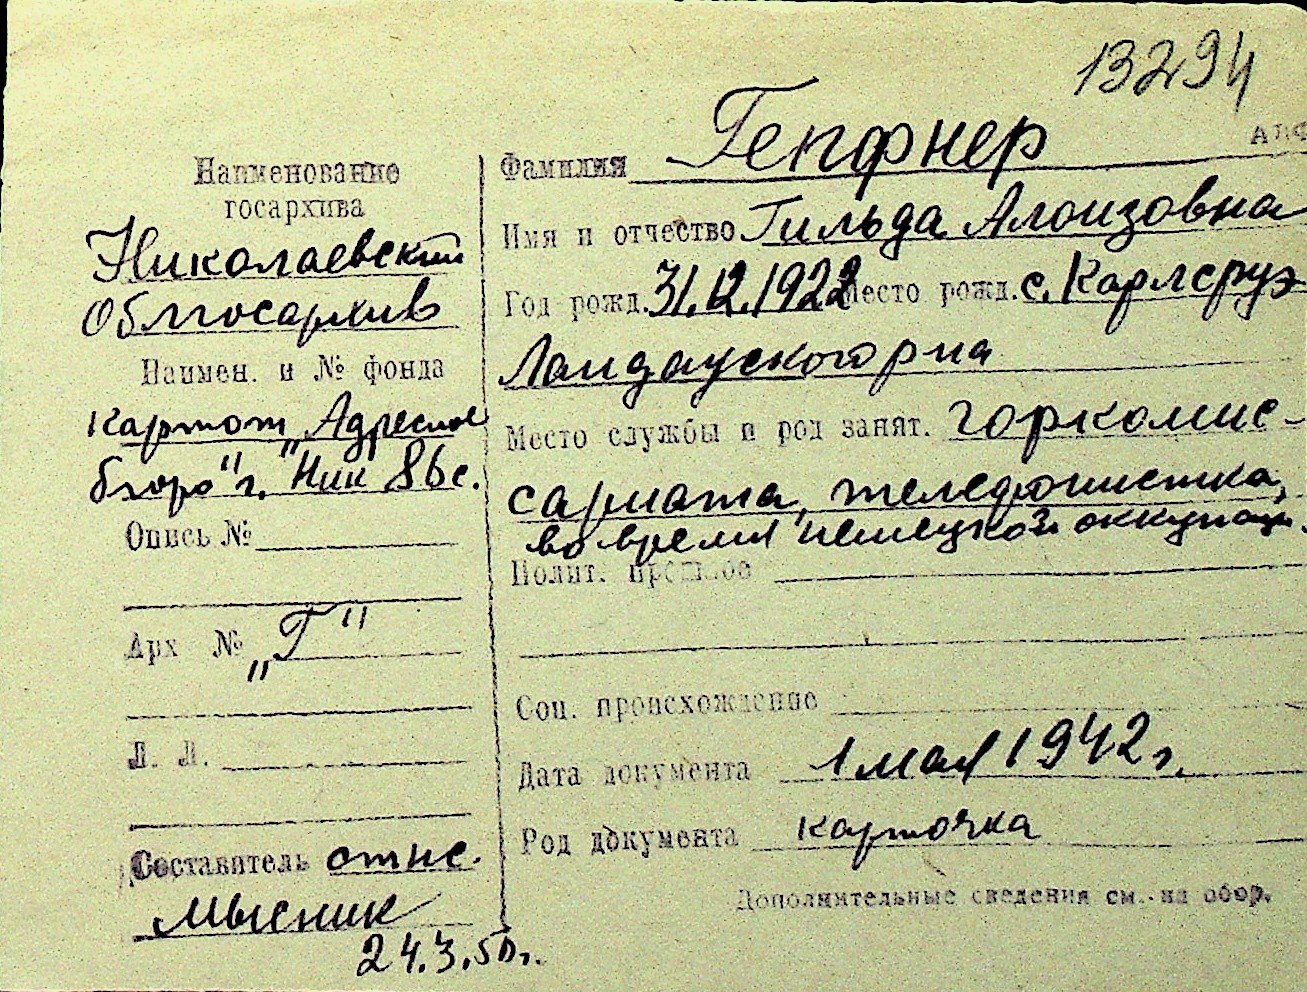 13294
Наименование
госархива
Николаевский
Облгосархив
Наимен. и № фонда
картот. „Адресное
бюро" г. Ник 86с.
Опись №
Арх № „Г"
Л. Л.
Составитель
мысник
24.3.50г.
Фамилия Гепфнер
Имя и отчество Гильда Алоизовна
Год рожд. 31.12.1922 Место рожд. с. Карлсруэ
Ландауского р-на
Место службы и род занят. горкомис-
сариата, телефонистка,
во время немецкой оккупации.
Полит. прошлое
Соц. происхождение
Дата документа 1 мая 1942 г.
Род документа карточка
Дополнительные сведения см. на обор.